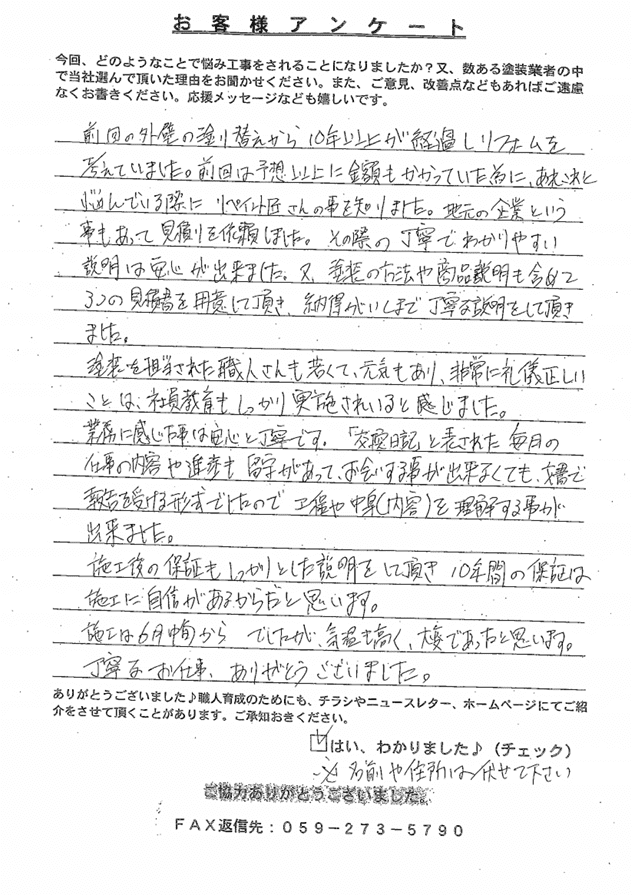 お客様アンケート
今回、どのようなことで悩み工事をされることになりましたか？又、数ある塗装業者の中
で当社選んで頂いた理由をお聞かせください。また、ご意見、改善点などもあればご遠慮
なくお書きください。応援メッセージなども嬉しいです。
前回の外壁の塗り替えから10年以上が経過しリフォームを
考えていました。前回は予想以上に金額もかかっていた為に、あれこれと
悩んでいる際にリペイント匠さんの事を知りました。地元の企業という
事もあって見積りを依頼しました。その際の丁寧でわかりやすい
説明は安心が出来ました。又、塗装の方法や商品説明も含めて
3つの見積書を用意して頂き、納得がいくまで丁寧な説明をして頂き
ました。
塗装を担当された職人さんも若くて、元気もあり、非常に礼儀正しい
ことは、社員教育もしっかり実施されいると感じました。
業務に感じた事は安心と丁寧です。「交換日記」と表された毎日の
仕事の内容や進捗も留守があって、お会いする事が出来なくても、文書で
報告を受ける形式でしたので工程や中身(内容)を理解する事が
出来ました。
施工後の保証もしっかりとした説明をして頂き10年間の保証は
施工に自信があるからだと思います。
施工は6月中旬からでしたが、気温も高く、大変であったと思います。
丁寧なお仕事、ありがとうございました。
ありがとうございました♪職人育成のためにも、チラシやニュースレター、ホームページにてご紹
介をさせて頂くことがあります。ご承知おきください。
☑はい、わかりました♪（チェック）
※名前や住所は伏せて下さい
ご協力ありがとうございました。
ＦＡＸ返信先：０５９－２７３－５７９０